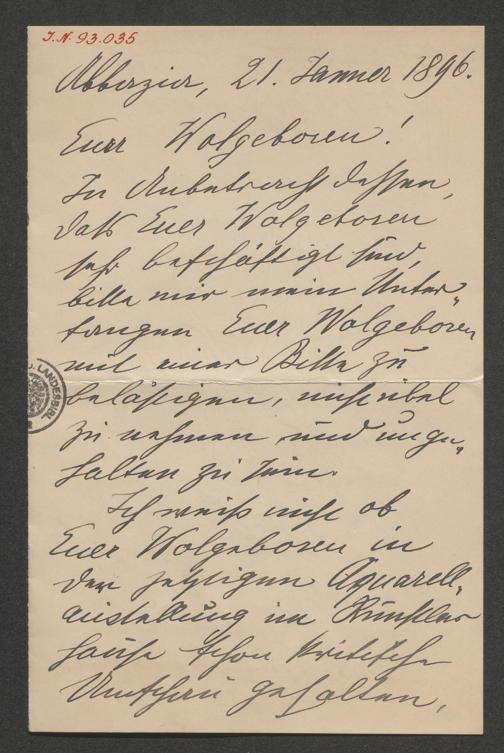 I.N. 93.035
Abbazia, 21. Jänner 1896.
Euer Wolgeboren!
In Anbetracht dessen,
daß Euer Wolgeboren
sehr beschäftigt sind,
bitte mir mein Unter„
fangen Euer Wolgeboren
mit einer Bitte zu
belästigen, nicht übel
zu nehmen und unge„
halten zu sein.
Ich weiß nicht ob
Euer Wolgeboren in
der jetzigen Aquarell„
austellung im Künstler
hause schon kritische
Umschau gehalten,
LANDESBIBL